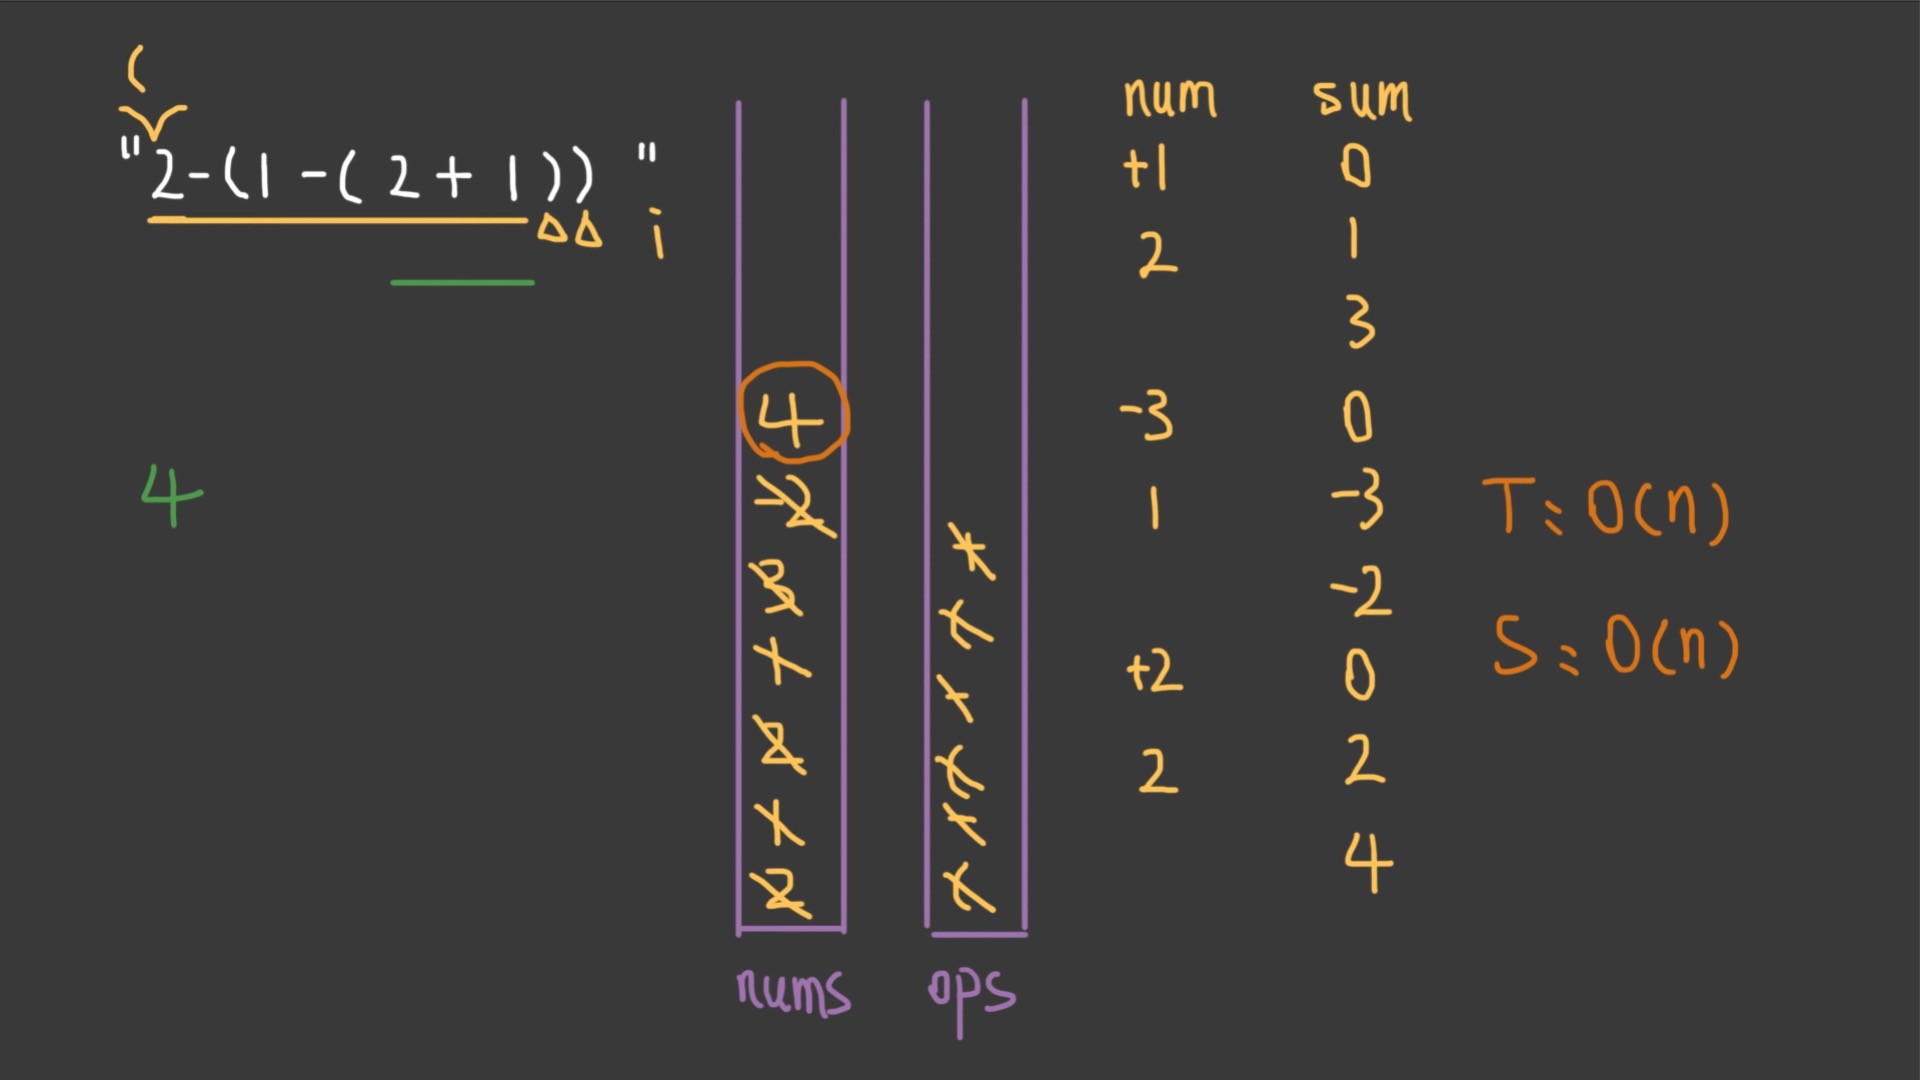 (
"2-(1-(2+1))"
i
4
4
nums
ops
num sum
+1 0
2 1
3
-3 0
1 -3
-2
+2 0
2 2
4
T: O(n)
S: O(n)